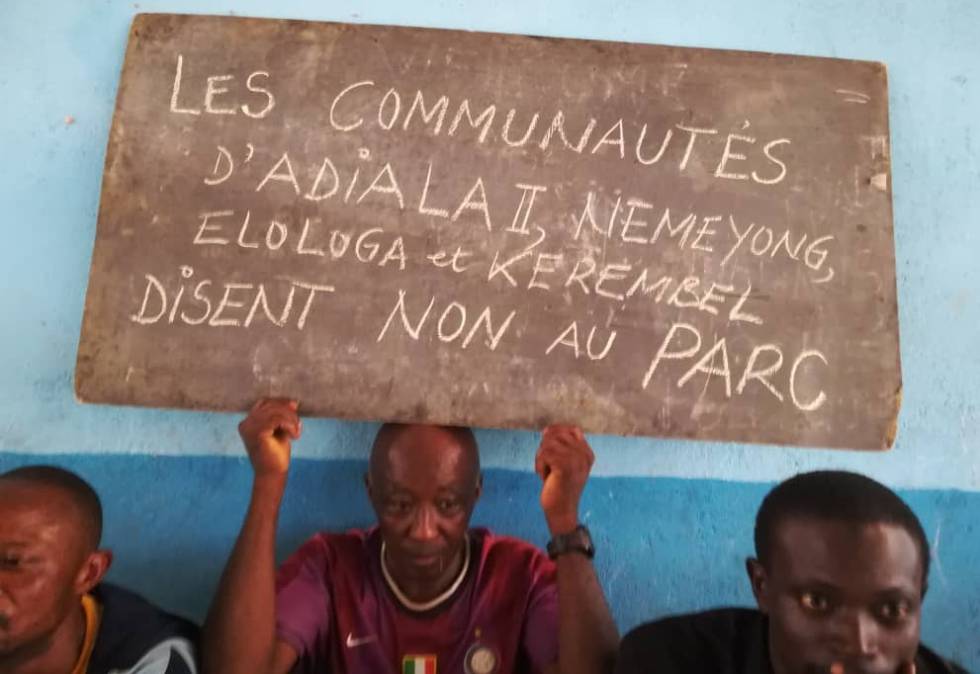 LES COMMUNAUTÉS
D'ADiALA II, NEMEYONG,
ELOLOGA et KEREMBEL
DiSENT NON AU PARC